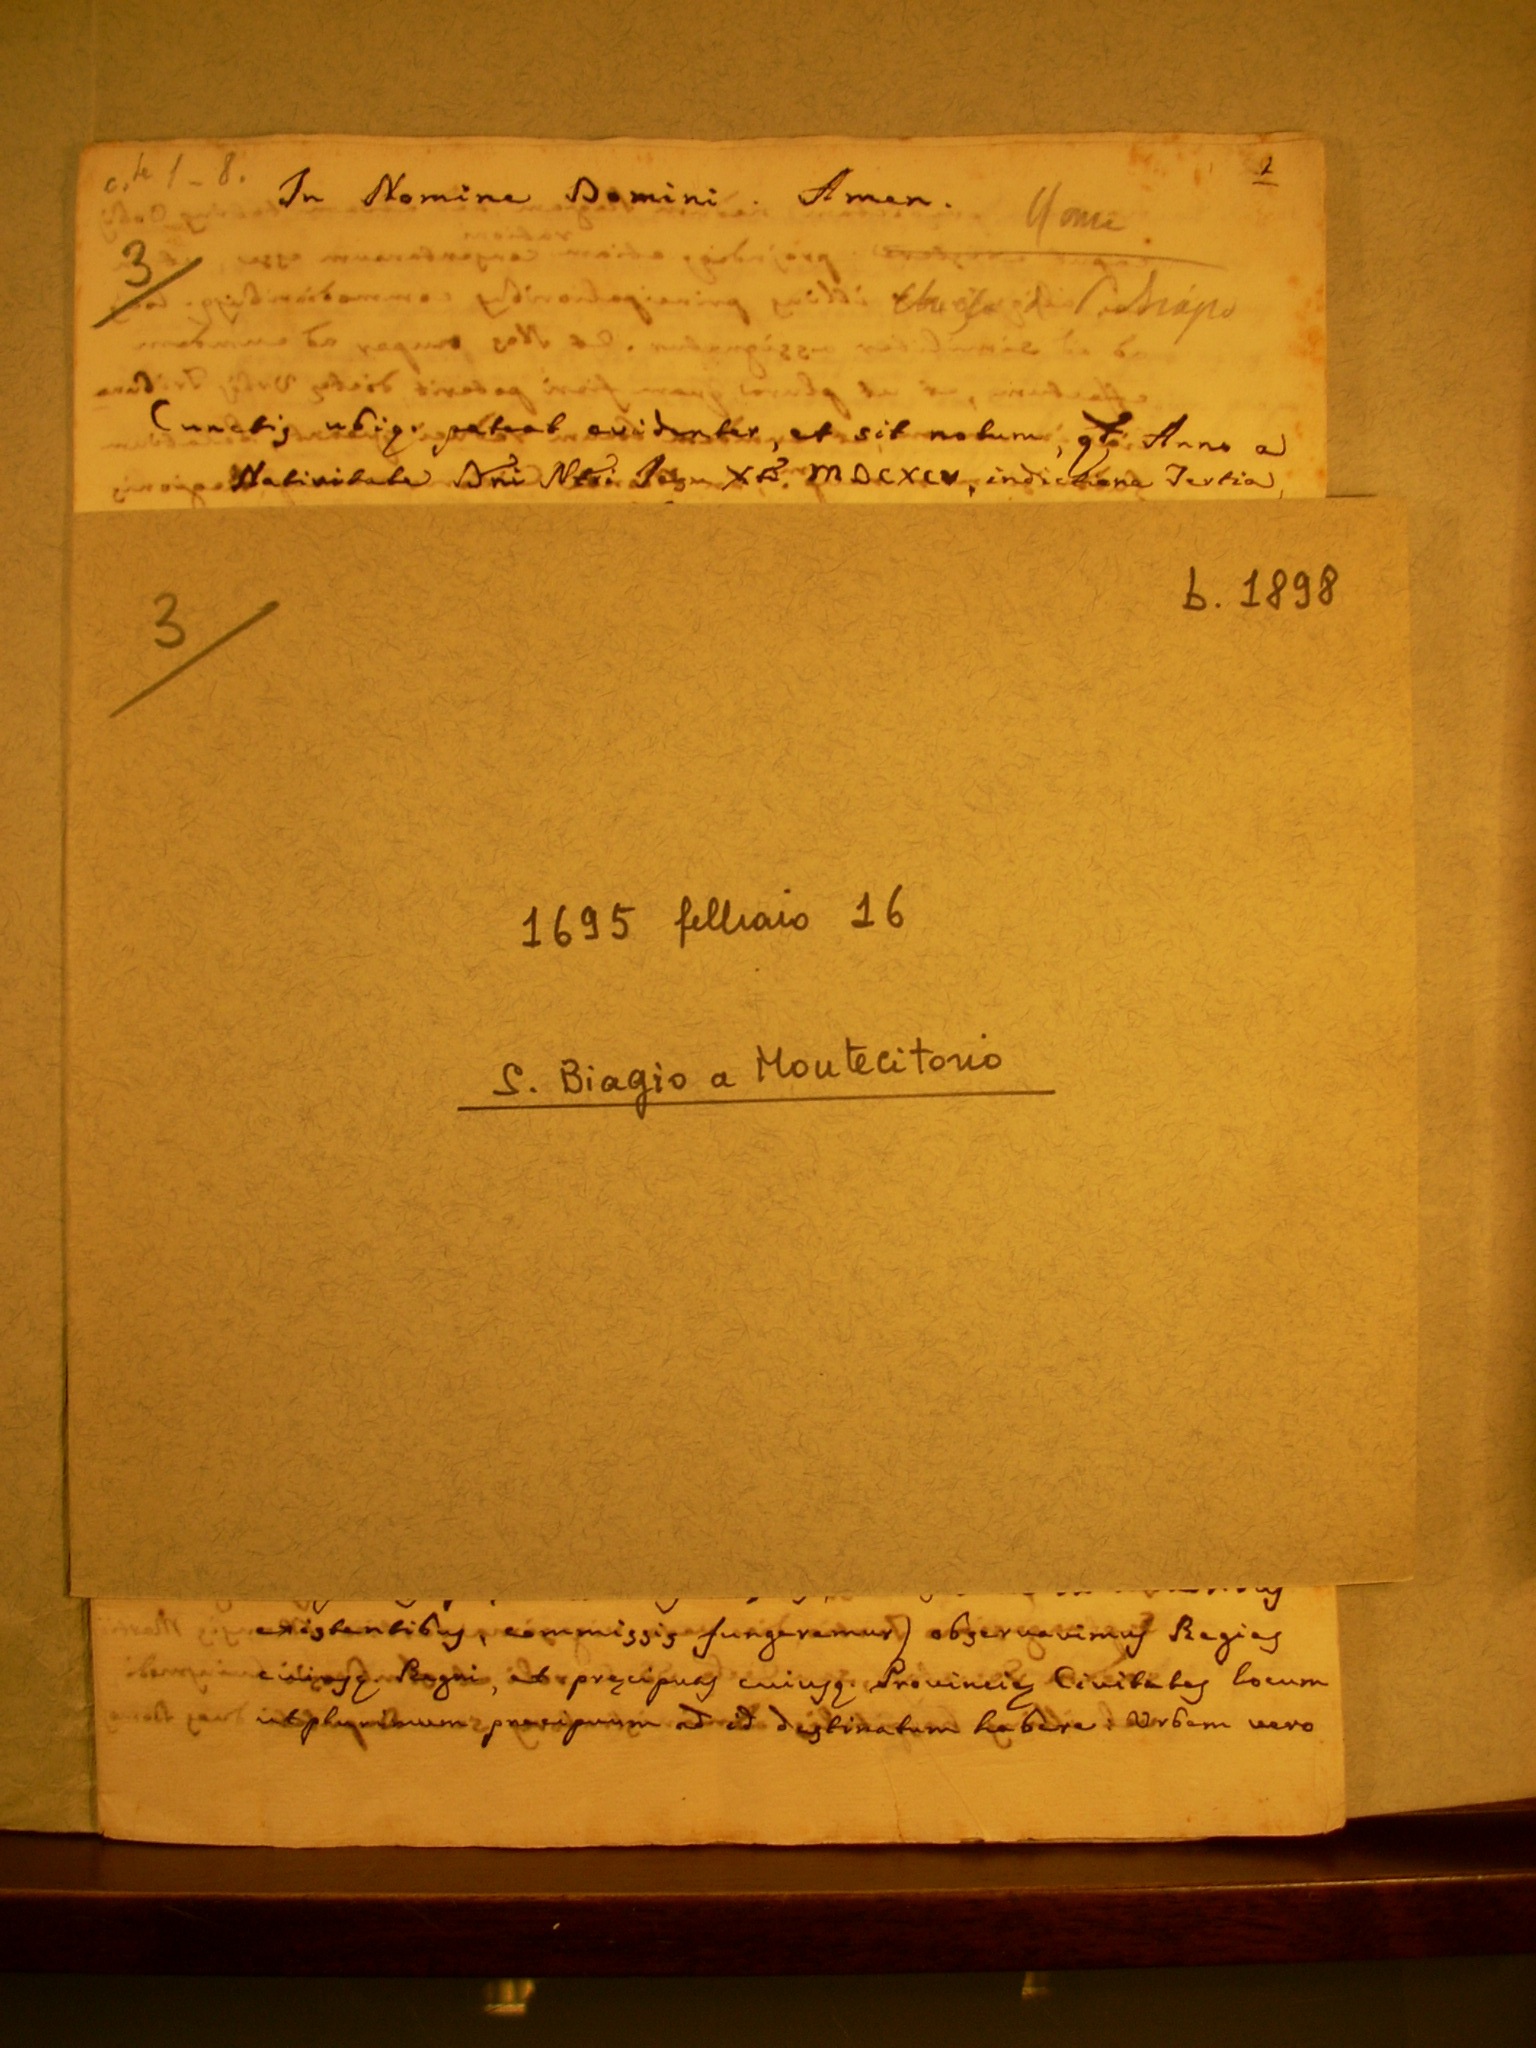 c.te 1-8.
In Nomine Domini. Amen.
1
Roma
3
Chiesa di S. Biagio
Cunctis ubiq; pateat evidenter, et sit notum, qd Anno a
Nativitate Dñi Nri Jesu Xti MDCXCV, indictione Tertia,
3
b. 1898
1695 febbraio 16
S. Biagio a Montecitorio
existentibus, commissis fungeremur) observavimus Regias
cuiusq Regni, et pręcipuas cuiusq Provincię Civitates locum
utplurimum precipuum ad id destinatum habere: Urbem vero